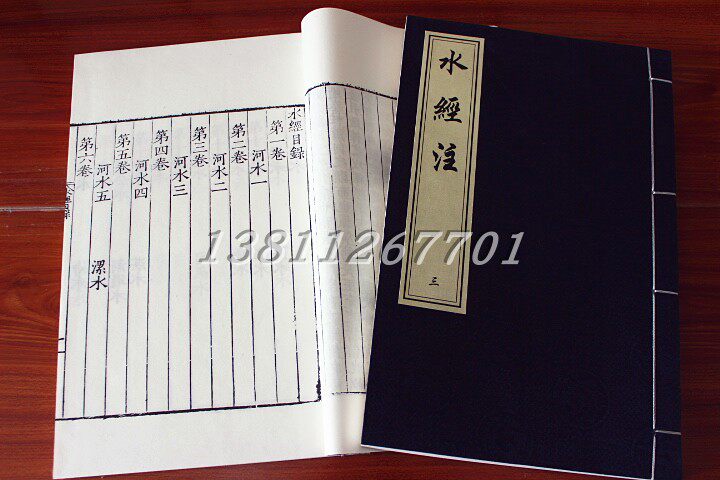 水經目錄
第一卷
河水一
第二卷
河水二
第三卷
河水三
第四卷
河水四
第五卷
河水五 漯水
第六卷
水經注
三
13811267701